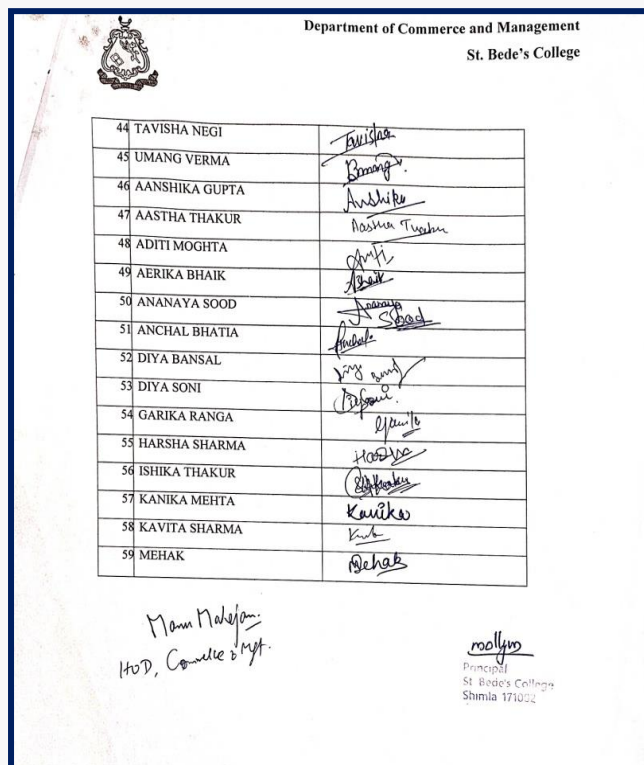 Department of Commerce and Management
St. Bede's College
44 TAVISHA NEGI Tavisha
45 UMANG VERMA
46 AANSHIKA GUPTA Anshika
47 AASTHA THAKUR Aastha Thakur
48 ADITI MOGHTA
49 AERIKA BHAIK ABhaik
50 ANANAYA SOOD Ananaya Sood
51 ANCHAL BHATIA Anchal
52 DIYA BANSAL
53 DIYA SONI
54 GARIKA RANGA
55 HARSHA SHARMA Harsha
56 ISHIKA THAKUR
57 KANIKA MEHTA Kanika
58 KAVITA SHARMA
59 MEHAK Mehak
Manu Mahajan.
HOD, Commerce & Mgt.
mollym
Principal
St Bede's College
Shimla 171002